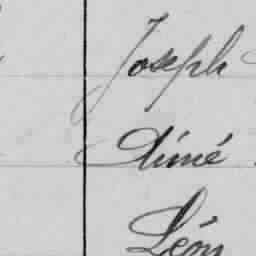 Joseph
Aimé
Léon